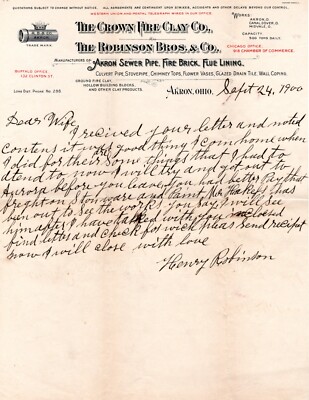 QUOTATIONS SUBJECT TO CHANGE WITHOUT NOTICE. ALL AGREEMENTS AND CONTRACTS UPON STRIKES, ACCIDENTS AND OTHER DELAYS BEYOND OUR CONTROL.
WESTERN UNION AND POSTAL TELEGRAPH WIRES IN OUR OFFICE.
THE CROWN FIRE CLAY CO.,
THE ROBINSON BROS. & CO.,
TRADE MARK
WORKS:
AKRON, O.
CANAL DOVER, O.
CAPACITY.
CHICAGO OFFICE:
CHAMBER OF COMMERCE.
MANUFACTURERS OF
AKRON SEWER PIPE, FIRE BRICK, FLUE LINING.
CULVERT PIPE, STOVEPIPE, CHIMNEY TOPS, FLOWER VASES, GLAZED DRAIN TILE, WALL COPING.
BUFFALO OFFICE:
133 CLINTON ST.
GROUND FIRE CLAY,
HOLLOW BUILDING BLOCKS,
AND OTHER CLAY PRODUCTS.
LONG DIST. PHONE NO. 293
AKRON, OHIO, Sept 24, 1900
Dear Wife
I received your letter and noted
contens it was good thing I com home when
I did for their are Som things that I had to
atend to now I will try and got out to
Aurora before you leave you had better Pay that
freighton Stonware and Pant Mr has
ben out to See the work you Say I will See
him after I have talked with you inclosed
find letter and check for wich pleas Send recipt
now I will close with love
Henry Robinson